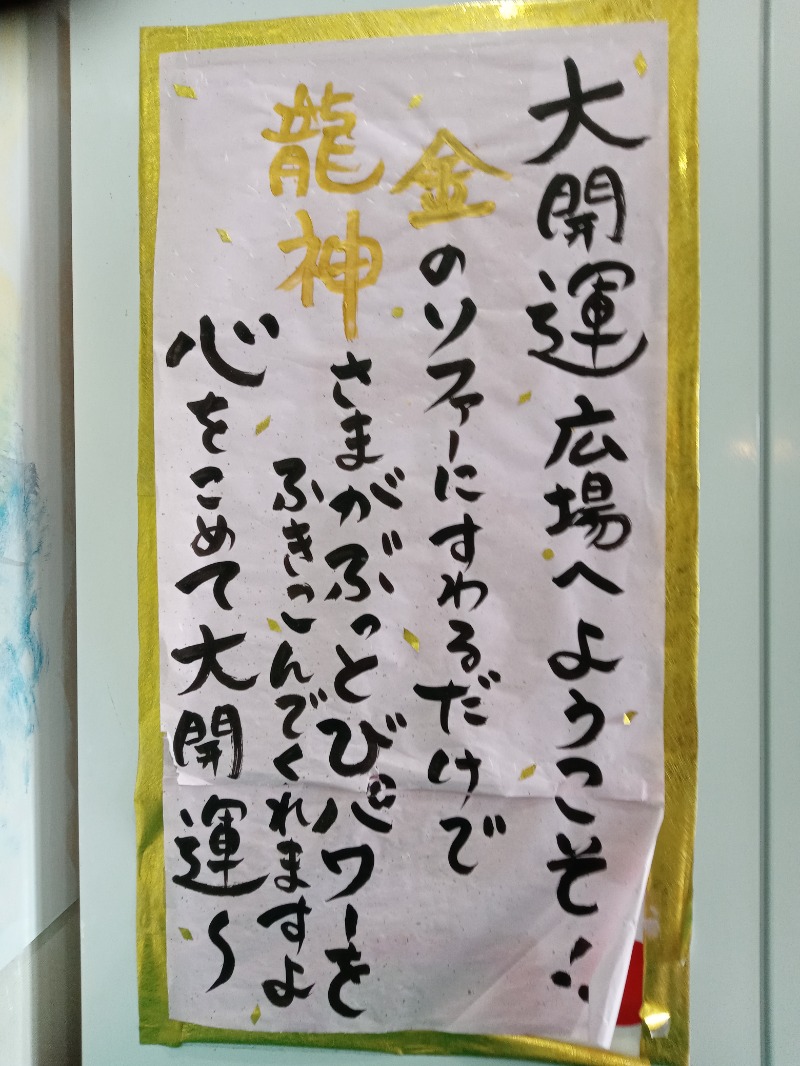 大開運広場へようこそ!!
金のソファーにすわるだけで
龍神さまがぶっとびパワーを
ふきこんでくれますよ
心をこめて大開運〜